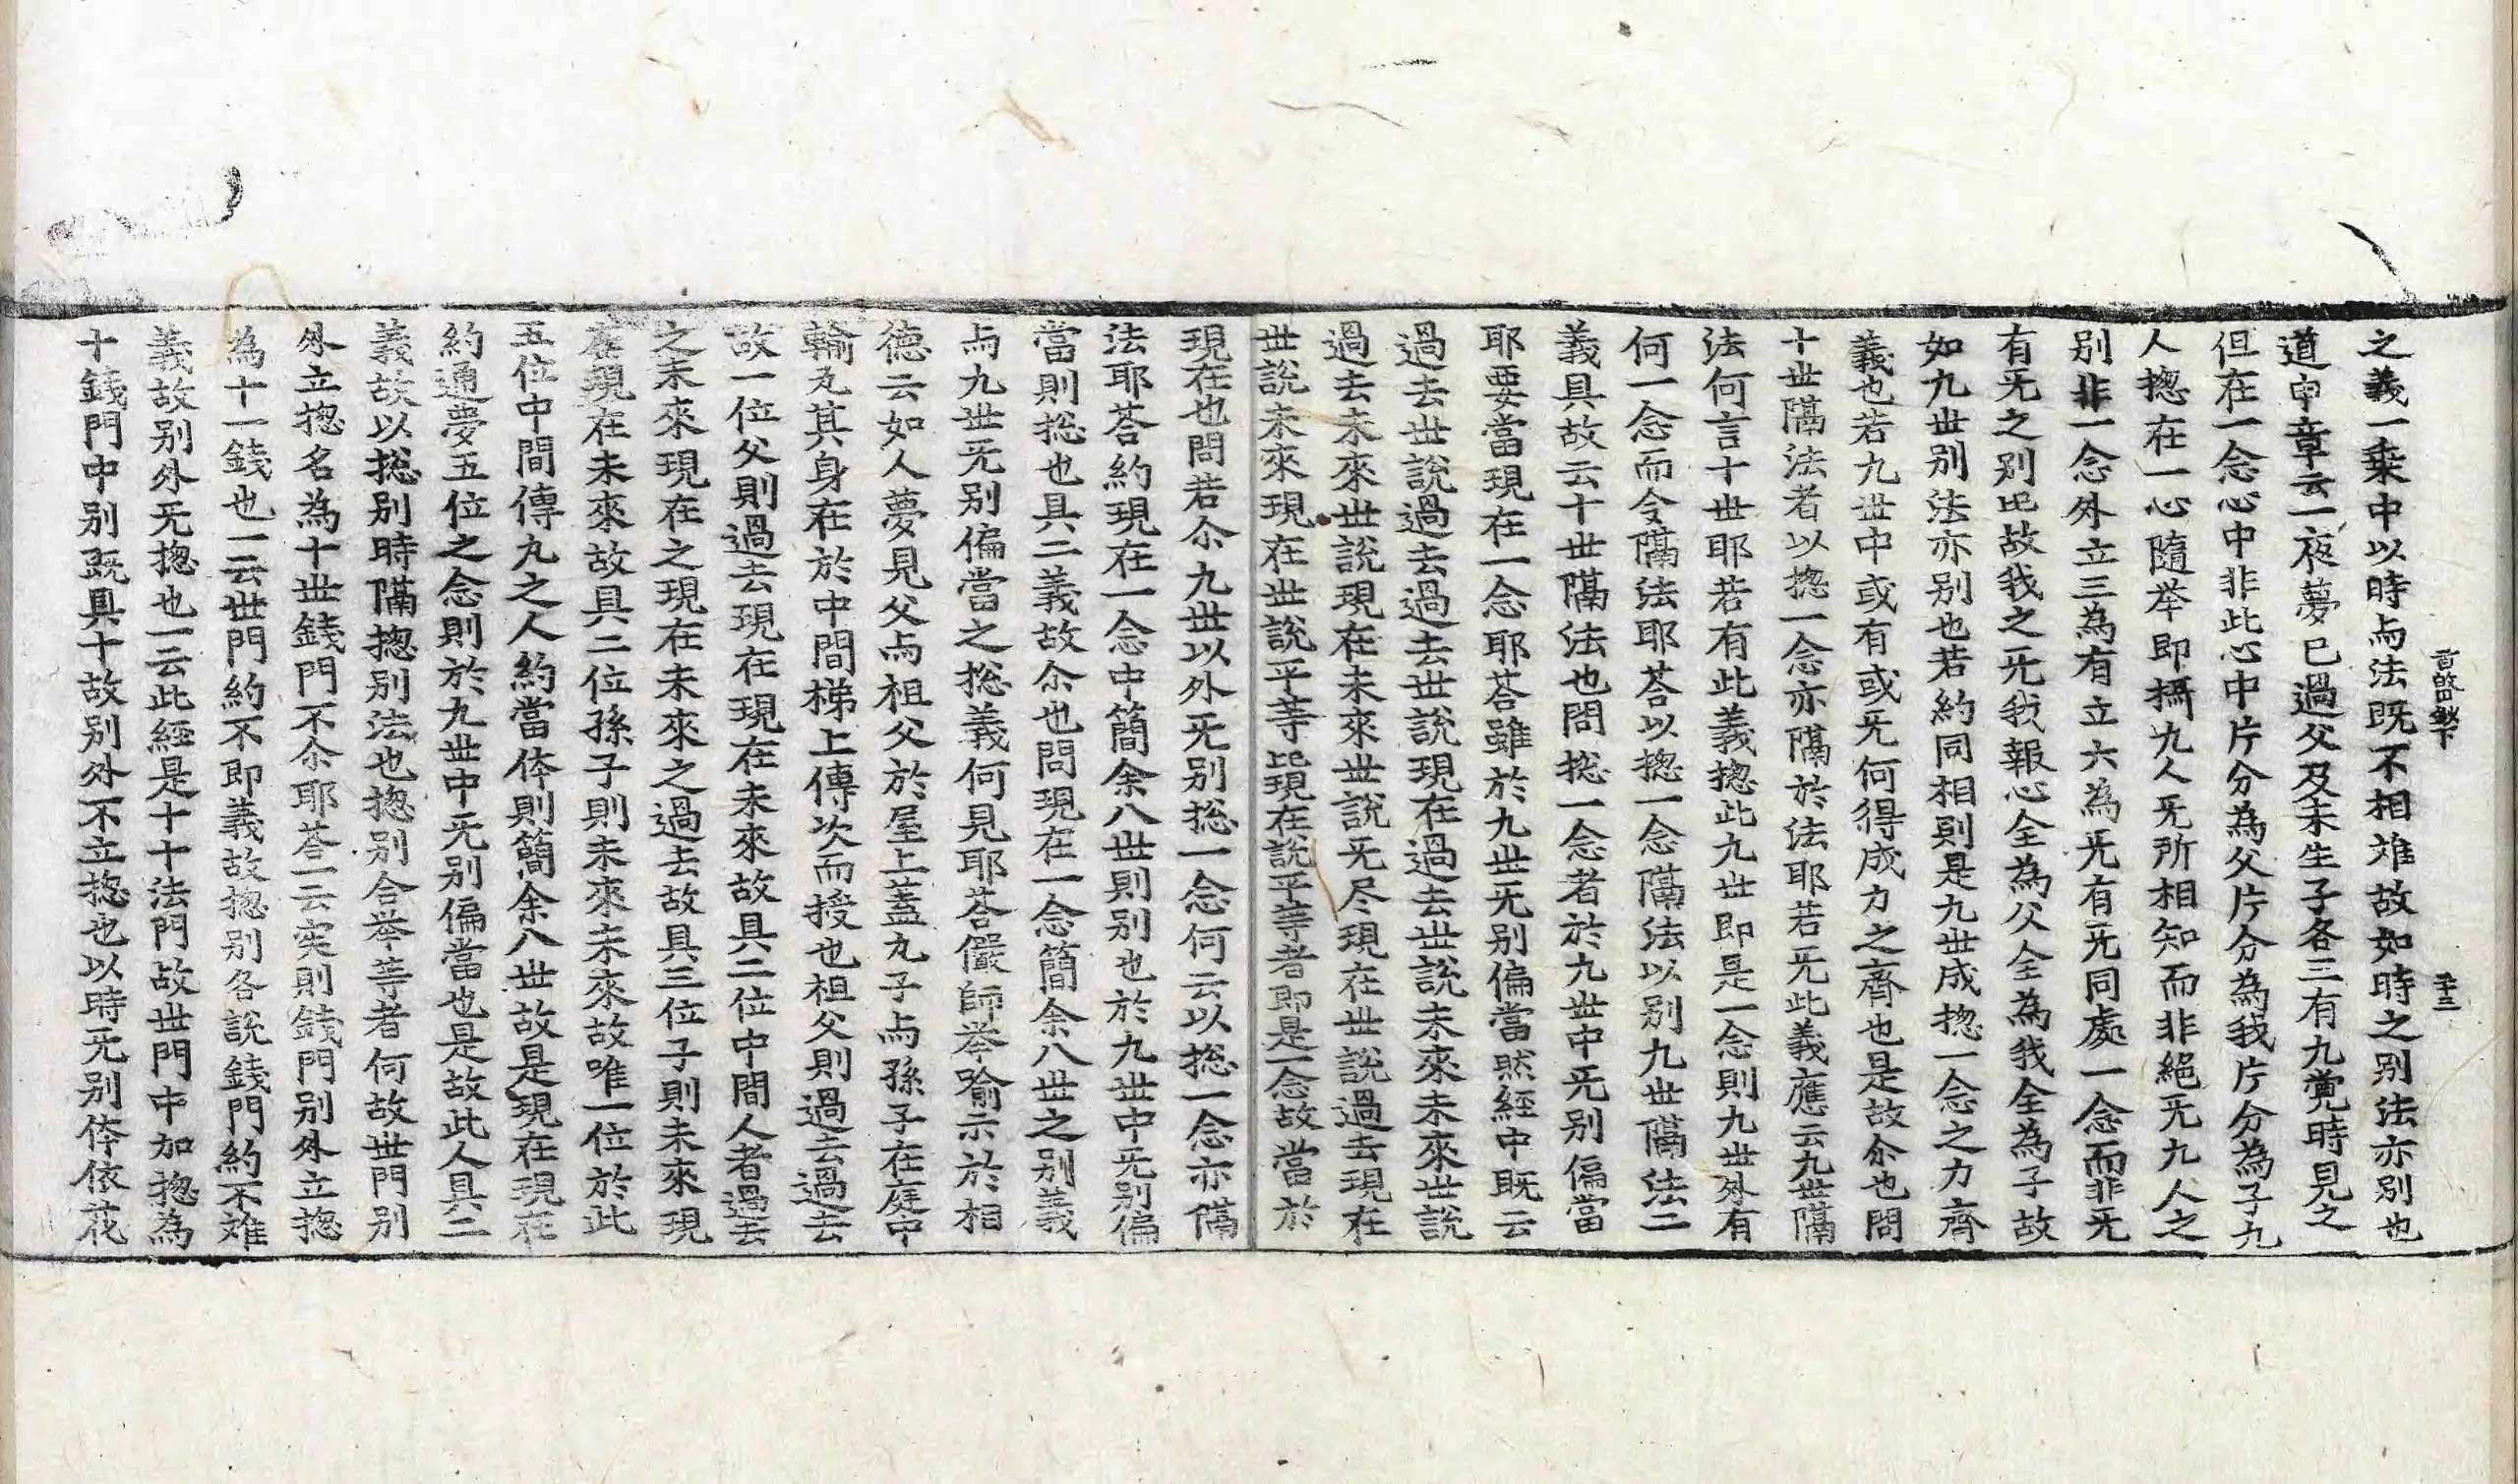 旨皈 下
之義一乗中以時与法既不相離故如時之别法亦别也
道申章云一夜夢已過父及未生子各三有九覺時見之
但在一念心中非此心中片分為父片分為我片分為子九
人揔在一心隨举即攝九人旡所相知而非絕旡九人之
别非一念外立三為有立六為旡有旡同處一念而非旡
有旡之别比故我之旡我報心全為父全為我全為子故
如九世别法亦别也若約同相則是九世成揔一念之力齊
義也若九世中或有或旡何得成力之齊也是故尒也問
十世隔法者以揔一念亦隔於法耶若旡此義應云九世隔
法何言十世耶若有此義揔此九世即是一念則九世外有
何一念而令隔法耶荅以揔一念隔法以别九世隔法二
義具故云十世隔法也問揔一念者於九世中旡别偏當
耶要當現在一念耶荅雖於九世旡别偏當然經中既云
過去世說過去過去世說現在過去世說未來未來世說
過去未來世說現在未來世說旡尽現在世說過去現在
世說未來現在世說平等比現在說平等者即是一念故當於
現在也問若尒九世以外旡别揔一念何云以揔一念亦隔
法耶荅約現在一念中簡余八世則别也於九世中旡别偏
當則揔也具二義故尒也問現在一念簡余八世之别義
与九世旡别偏當之揔義何見耶荅儼師举喻示於相
德云如人夢見父与祖父於屋上蓋丸子与孫子在庭中
輪丸其身在於中間梯上傳次而授也祖父則過去過去
故一位父則過去現在現在未來故具二位中間人者過去
之未來現在之現在未來之過去故具三位子則未來現
在現在未來故具二位孫子則未來未來故唯一位於此
五位中間傳丸之人約當体則簡余八世故是現在現在
約通夢五位之念則於九世中旡别偏當也是故此人具二
義故以揔别時隔揔别法也揔别合举等者何故世門别
外立揔名為十世錢門不尒耶荅一云実則錢門别外立揔
為十一錢也一云世門約不即義故揔别各說錢門約不離
義故别外旡揔也一云此經是十十法門故世門中加揔為
十錢門中别既具十故别外不立揔也以時旡别体依花